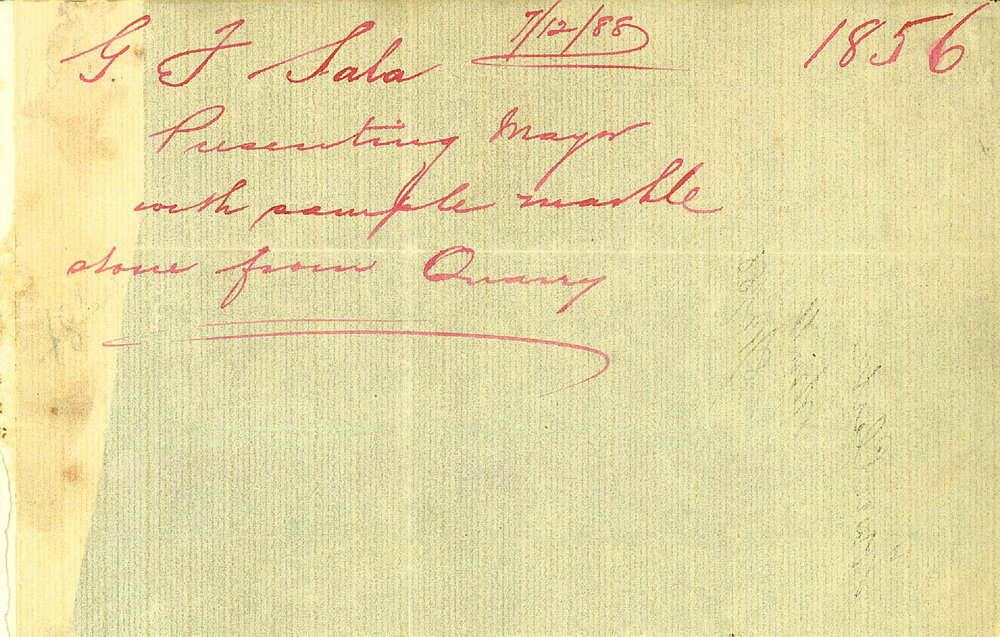 7/12/88
1856
G. F Sala
Presenting Mayor
with sample marble
stone from Quarry